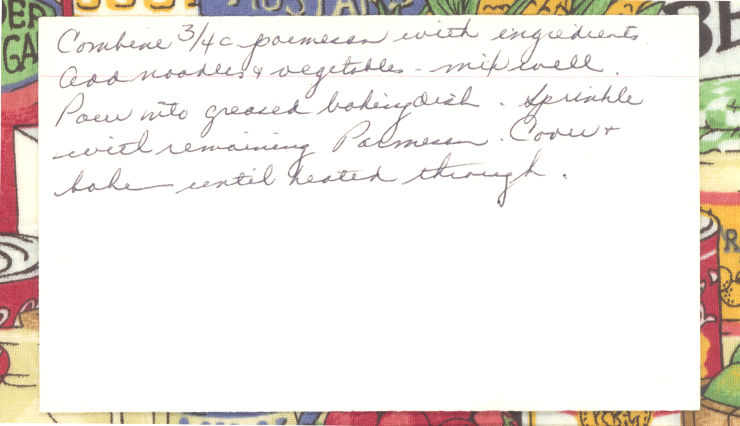 Combine 3/4 c parmesan with ingredients.
Add noodles & vegetables - mix well.
Pour into greased baking dish. Sprinkle
with remaining Parmesan. Cover +
bake until heated through.